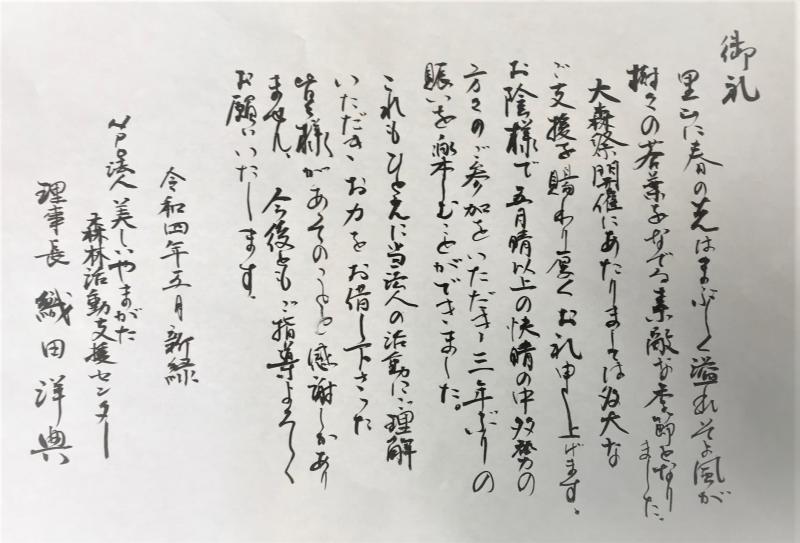 御礼
里山に春の光はまぶしく溢れそよ風が
樹々の若葉をなでる素敵な季節となり
ました。
大森祭開催にあたりましては多大な
ご支援を賜わり厚くお礼申し上げます。
お陰様で五月晴以上の快晴の中多勢の
方々のご参加をいただき三年ぶりの
賑いを楽しむことができました。
これもひとえに当法人の活動にご理解
いただきお力をお借し下さった
皆様があってのことと感謝しかあり
ません。今後ともご指導よろしく
お願いいたします。
令和四年五月新緑
NPO法人美しいやまがた
森林活動支援センター
理事長 織田洋典